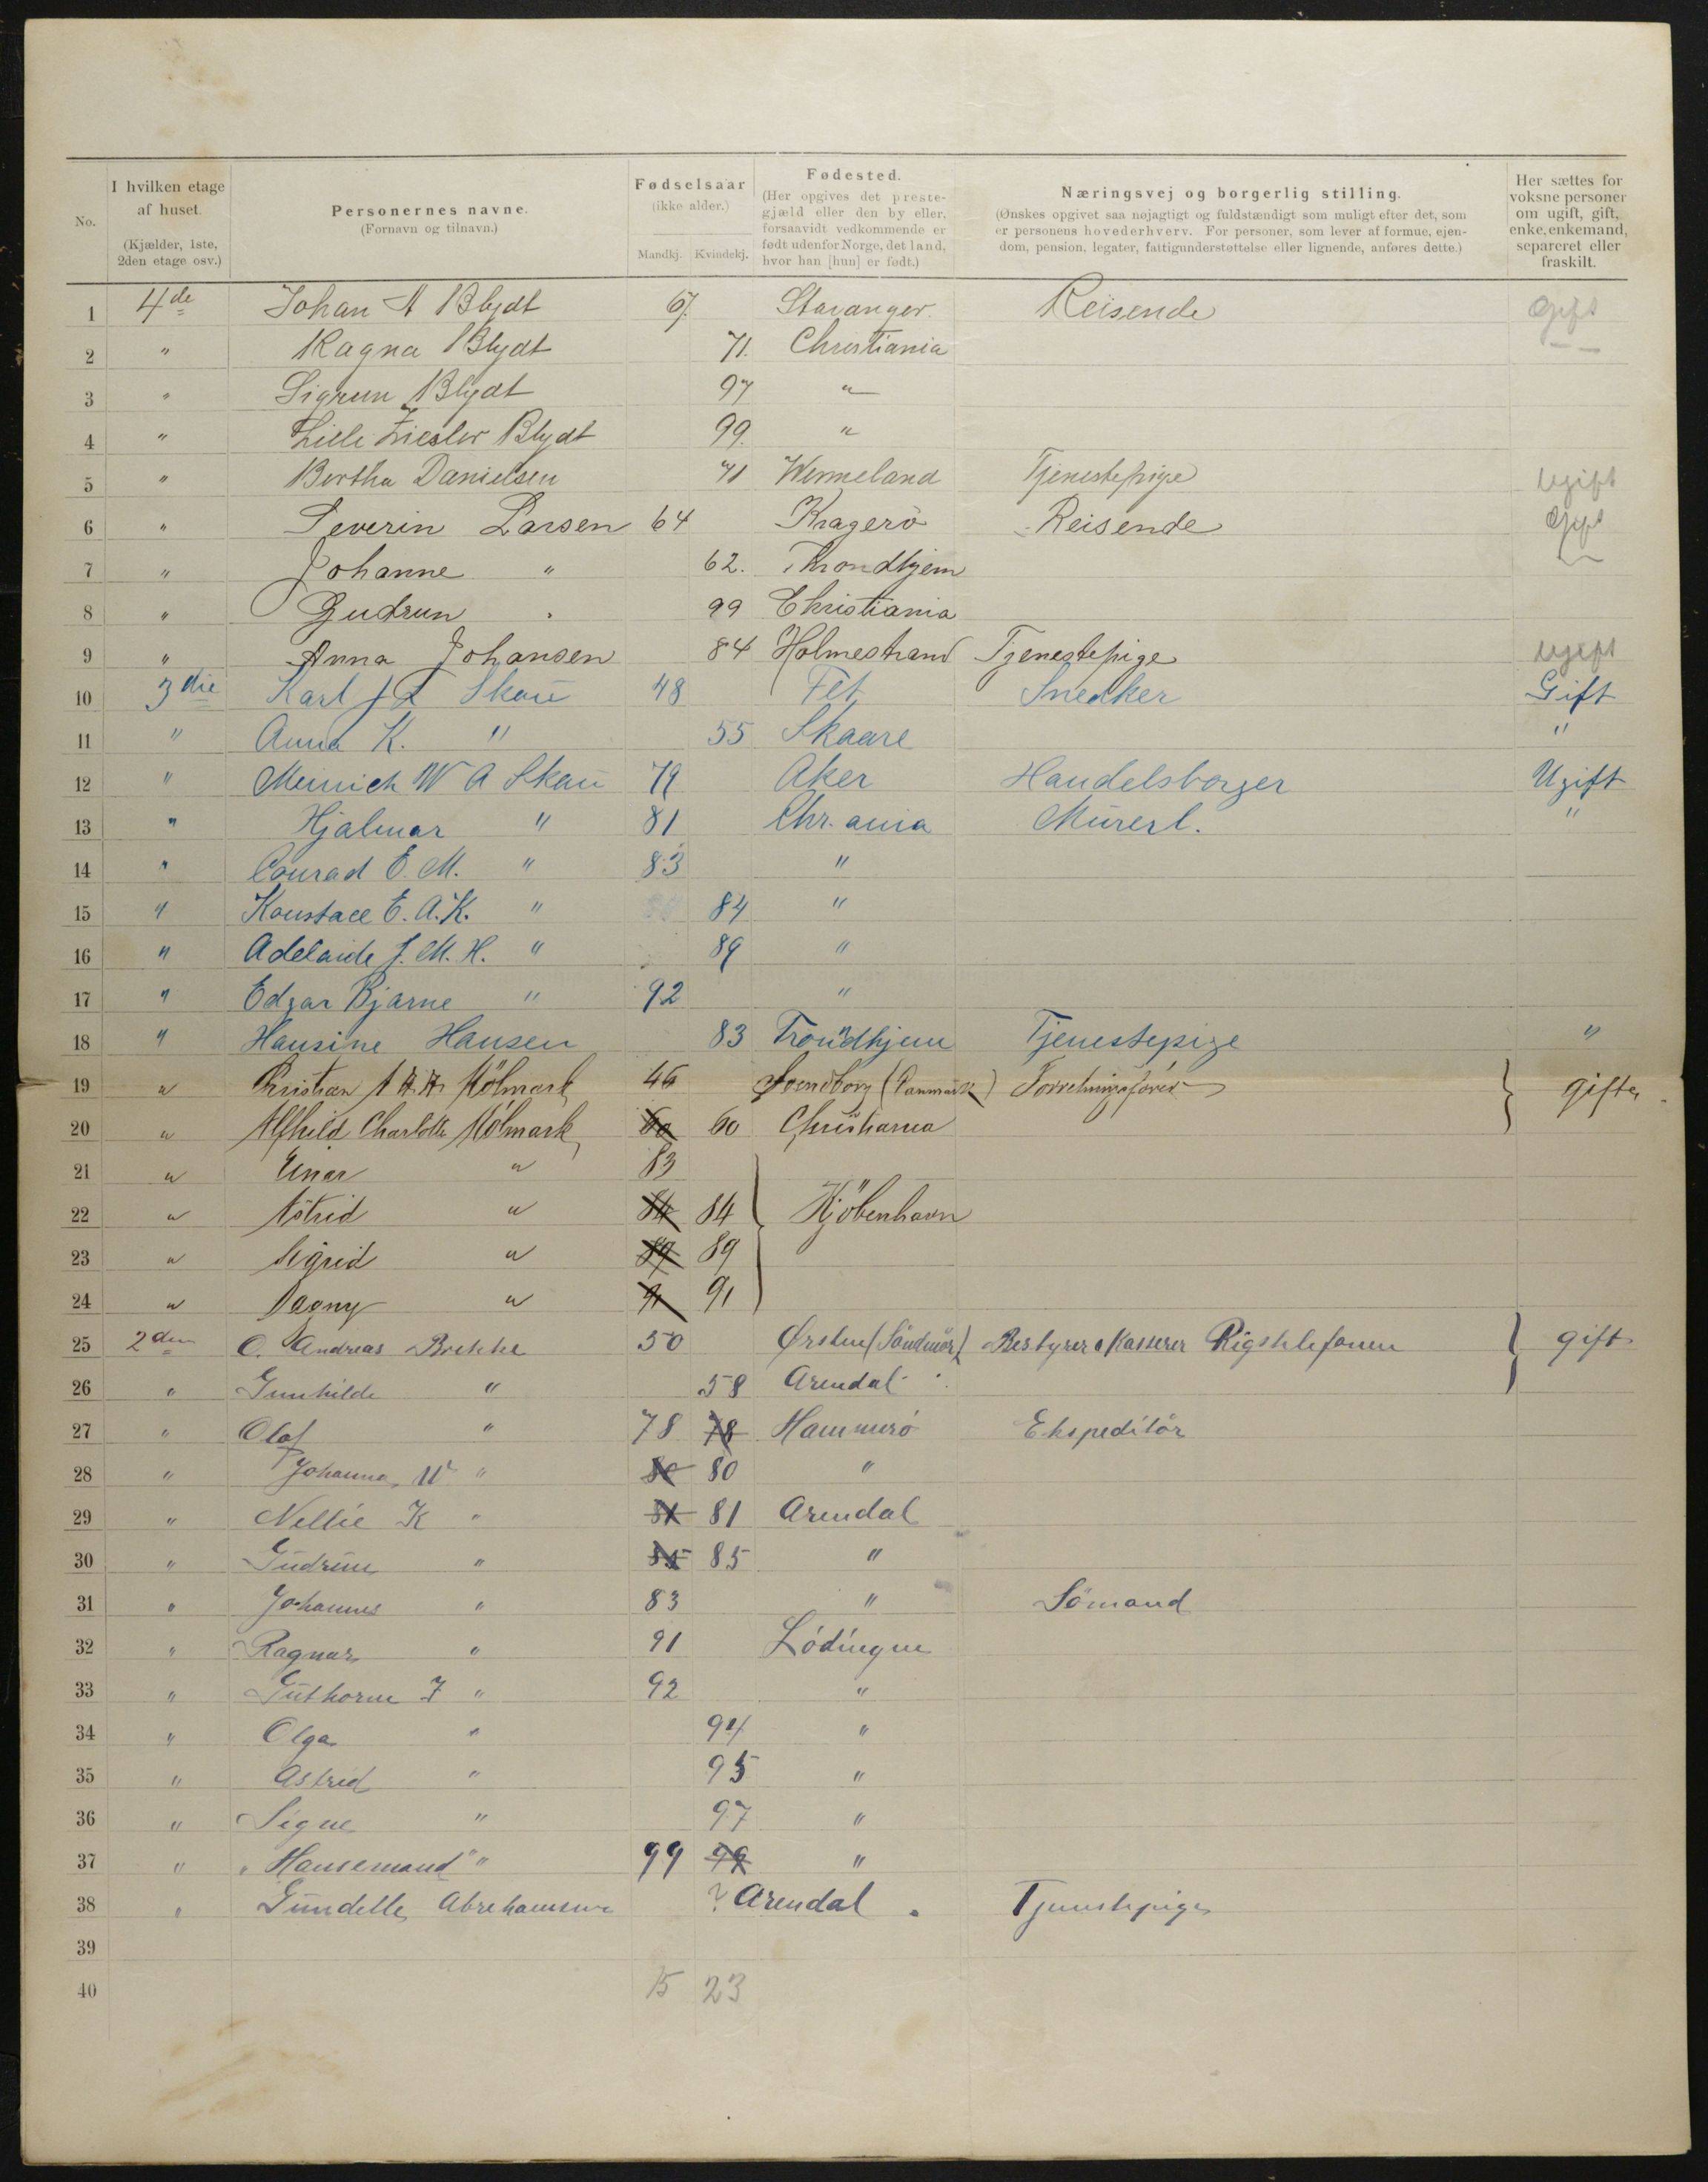 No.
I hvilken etage af huset. (Kjælder, 1ste, 2den etage osv.)
Personernes navne. (Fornavn og tilnavn.)
Fødselsaar (ikke alder.) Mandkj. Kvindekj.
Fødested. (Her opgives det prestegjæld eller den by eller, forsaavidt vedkommende er født udenfor Norge, det land, hvor han [hun] er født.)
Næringsvej og borgerlig stilling. (Ønskes opgivet saa nøjagtigt og fuldstændigt som muligt efter det, som er personens hovederhverv. For personer, som lever af formue, ejendom, pension, legater, fattigunderstøttelse eller lignende, anføres dette.)
Her sættes for voksne personer om ugift, gift, enke, enkemand, separeret eller fraskilt.
1 4de Johan A Blydt 67. Stavanger. Reisende Gift
2 " Ragna Blydt 71. Christiania "
3 " Sigrun Blydt 97 "
4 " Lilli Ziesler Blydt 99. "
5 " Bertha Danielsen 71 Wermeland Tjenestepige ugift
6 " Severin Larsen 64 Kragerö Reisende Gift
7 " Johanne " 62. Throndhjem
8 " Gudrun " 99 Christiania
9 " Anna Johansen 84 Holmestrand Tjenestepige ugift
10 3die Karl J L Skau 48 Fet Snedker Gift
11 " Anna K. " 55 Skaare "
12 " Meinich W A Skau 79 Aker Handelsborger Ugift
13 " Hjalmar " 81 Chr.ania Murerl. "
14 " Conrad E. M. " 83 "
15 " Konstace E. A. K. " 84 "
16 " Adelaide J. M. H. " 89 "
17 " Edgar Bjarne " 92 "
18 " Hansine Hansen 83 Trondhjem Tjenestepige "
19 " Christian A H. Hölmark 46 Svendborg (Danmark) Forretningsförer gifte
20 " Alfhild Charlotte Hölmark 60 60 Christiania
21 " Einar " 83
22 " Astrid " 84 84 Kjöbenhavn
23 " Sigrid " 89 89
24 " Dagny " 91 91
25 2den O. Andreas Brekke 50 Ørsten (Söndmör) Bestyrer & Kasserer Rigstelefonen gift
26 " Gunhilde " 58 Arendal
27 " Olaf " 78 78 Hammerö Ekspeditör
28 " Johanna W " 80 80 "
29 " Nellie K " 81 81 Arendal
30 " Gudrun " 85 85 "
31 " Johannes " 83 " Sömand
32 " Ragnar " 91 Lödingen
33 " Guthorm F " 92 "
34 " Olga " 94 "
35 " Astrid " 95 "
36 " Signe " 97 "
37 " "Hansemand" " 99 99 "
38 " Gundelle Abrehamsen ? Arendal Tjenestepige
39
40 15 23